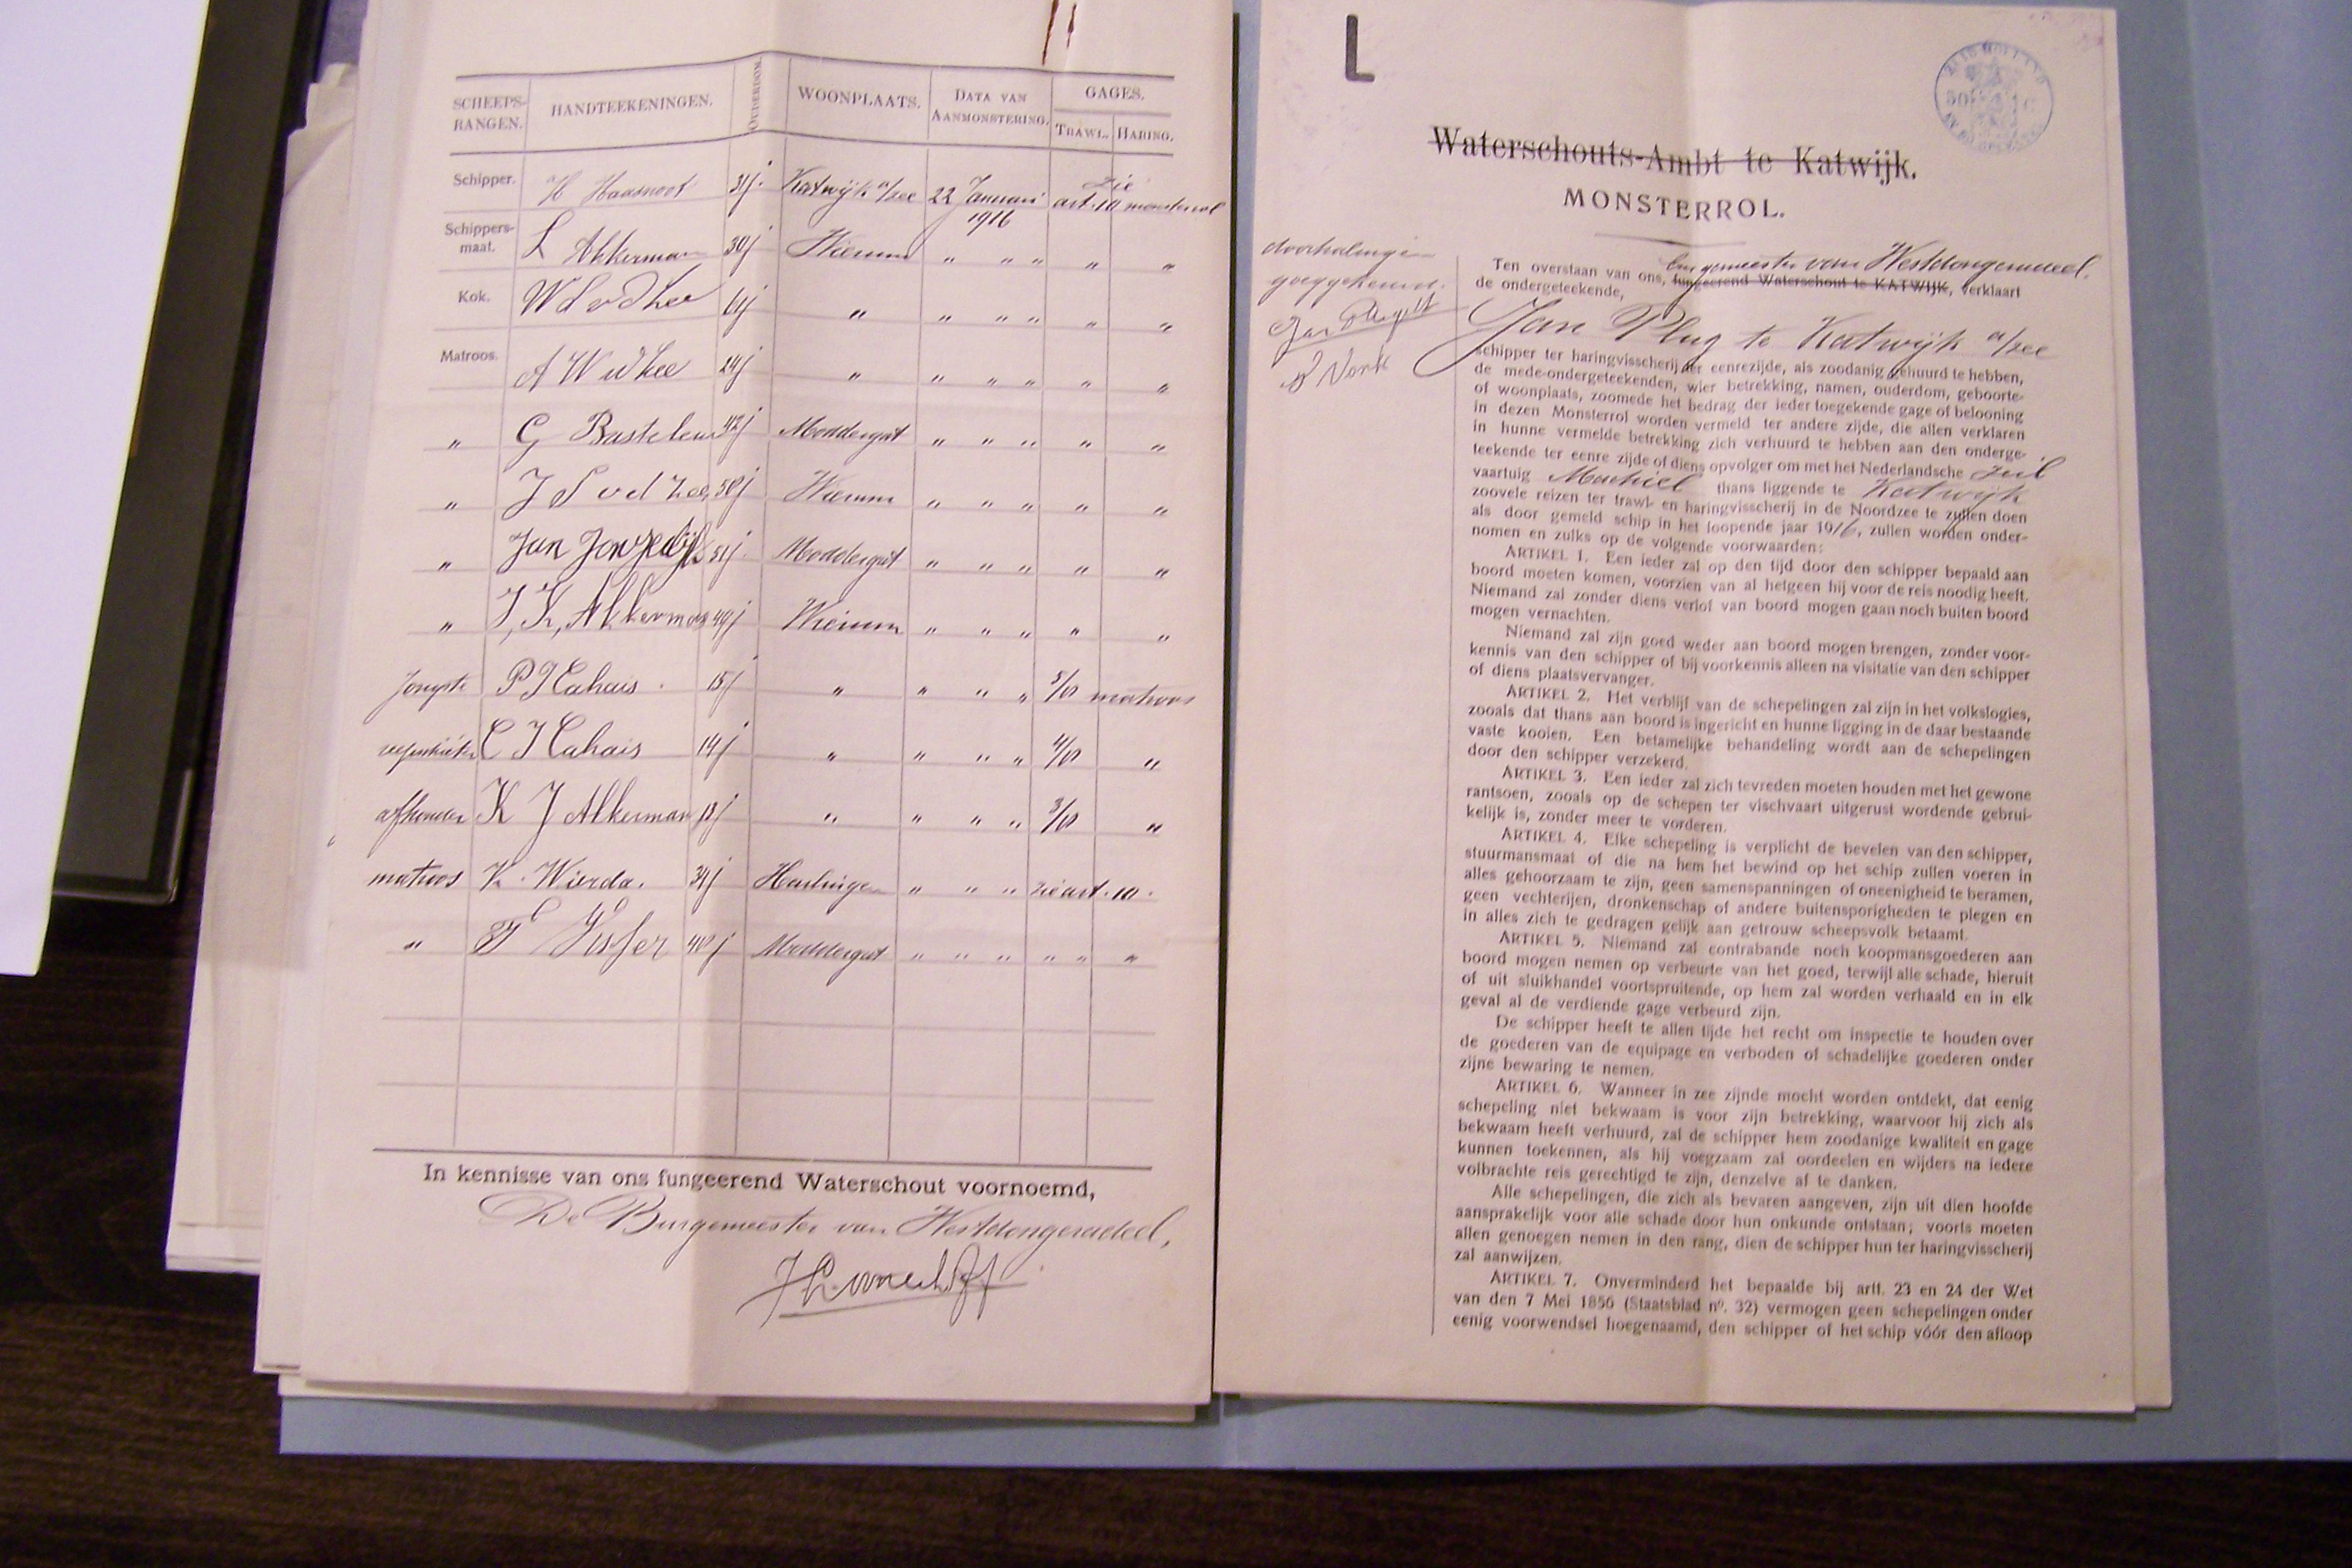 SCHEEPS-RANGEN. HANDTEEKENINGEN. OUDERDOM. WOONPLAATS. DATA VAN AANMONSTERING. GAGES. TRAWL. HARING.
Schipper. H Haasnoot 31j. Katwijk a/zee 22 Januari 1916 zie art. 10 monsterrol
Schippers-maat. L Akkerman 30j Wierum " " " " "
Kok. 61j " " " " " "
Matroos. A W vd Zee 24j " " " " " "
" G Basteleur 42j Moddergat " " " " "
" J S vd Zee 50j Wierum " " " " "
" Jan 51j. Moddergat " " " " "
" J, K, Akkerman 49j Wierum " " " " "
jongste P J Cahais. 15j " " " " 5/10 matroos
C J Cahais 14j " " " " 4/10 "
afhouder K J Akkerman 13j " " " " 3/10 "
matroos K. Wierda. 31j Harlingen " " " zie art. 10.
" Visser 40j Moddergat " " " " " "
In kennisse van ons fungeerend Waterschout voornoemd,
De Burgemeester van Westdongeradeel,
L
Waterschouts-Ambt te Katwijk.
MONSTERROL.
doorhalingen
goedgekeurd.
Burgemeester van Westdongeradeel.
Ten overstaan van ons, fungeerend Waterschout te KATWIJK, verklaart
de ondergeteekende,
Jan Plug te Katwijk a/zee
schipper ter haringvisscherij ter eenrezijde, als zoodanig gehuurd te hebben,
de mede-ondergeteekenden, wier betrekking, namen, ouderdom, geboorte-
of woonplaats, zoomede het bedrag der ieder toegekende gage of belooning
in dezen Monsterrol worden vermeld ter andere zijde, die allen verklaren
in hunne vermelde betrekking zich verhuurd te hebben aan den onderge-
teekende ter eenre zijde of diens opvolger om met het Nederlandsche zeil
vaartuig Machiel thans liggende te Katwijk
zoovele reizen ter trawl- en haringvisscherij in de Noordzee te zullen doen
als door gemeld schip in het loopende jaar 1916, zullen worden onder-
nomen en zulks op de volgende voorwaarden:
ARTIKEL 1. Een ieder zal op den tijd door den schipper bepaald aan
boord moeten komen, voorzien van al hetgeen hij voor de reis noodig heeft.
Niemand zal zonder diens verlof van boord mogen gaan noch buiten boord
mogen vernachten.
Niemand zal zijn goed weder aan boord mogen brengen, zonder voor-
kennis van den schipper of bij voorkennis alleen na visitatie van den schipper
of diens plaatsvervanger.
ARTIKEL 2. Het verblijf van de schepelingen zal zijn in het volkslogies,
zooals dat thans aan boord is ingericht en hunne ligging in de daar bestaande
vaste kooien. Een betamelijke behandeling wordt aan de schepelingen
door den schipper verzekerd.
ARTIKEL 3. Een ieder zal zich tevreden moeten houden met het gewone
rantsoen, zooals op de schepen ter vischvaart uitgerust wordende gebrui-
kelijk is, zonder meer te vorderen.
ARTIKEL 4. Elke schepeling is verplicht de bevelen van den schipper,
stuurmansmaat of die na hem het bewind op het schip zullen voeren in
alles gehoorzaam te zijn, geen samenspanningen of oneenigheid te beramen,
geen vechterijen, dronkenschap of andere buitensporigheden te plegen en
in alles zich te gedragen gelijk aan getrouw scheepsvolk betaamt.
ARTIKEL 5. Niemand zal contrabande noch koopmansgoederen aan
boord mogen nemen op verbeurte van het goed, terwijl alle schade, hieruit
of uit sluikhandel voortspruitende, op hem zal worden verhaald en in elk
geval al de verdiende gage verbeurd zijn.
De schipper heeft te allen tijde het recht om inspectie te houden over
de goederen van de equipage en verboden of schadelijke goederen onder
zijne bewaring te nemen.
ARTIKEL 6. Wanneer in zee zijnde mocht worden ontdekt, dat eenig
schepeling niet bekwaam is voor zijn betrekking, waarvoor hij zich als
bekwaam heeft verhuurd, zal de schipper hem zoodanige kwaliteit en gage
kunnen toekennen, als hij voegzaam zal oordeelen en wijders na iedere
volbrachte reis gerechtigd te zijn, denzelve af te danken.
Alle schepelingen, die zich als bevaren aangeven, zijn uit dien hoofde
aansprakelijk voor alle schade door hun onkunde ontstaan; voorts moeten
allen genoegen nemen in den rang, dien de schipper hun ter haringvisscherij
zal aanwijzen.
ARTIKEL 7. Onverminderd het bepaalde bij artt. 23 en 24 der Wet
van den 7 Mei 1856 (Staatsblad nº. 32) vermogen geen schepelingen onder
eenig voorwendsel hoegenaamd, den schipper of het schip vóór den afloop